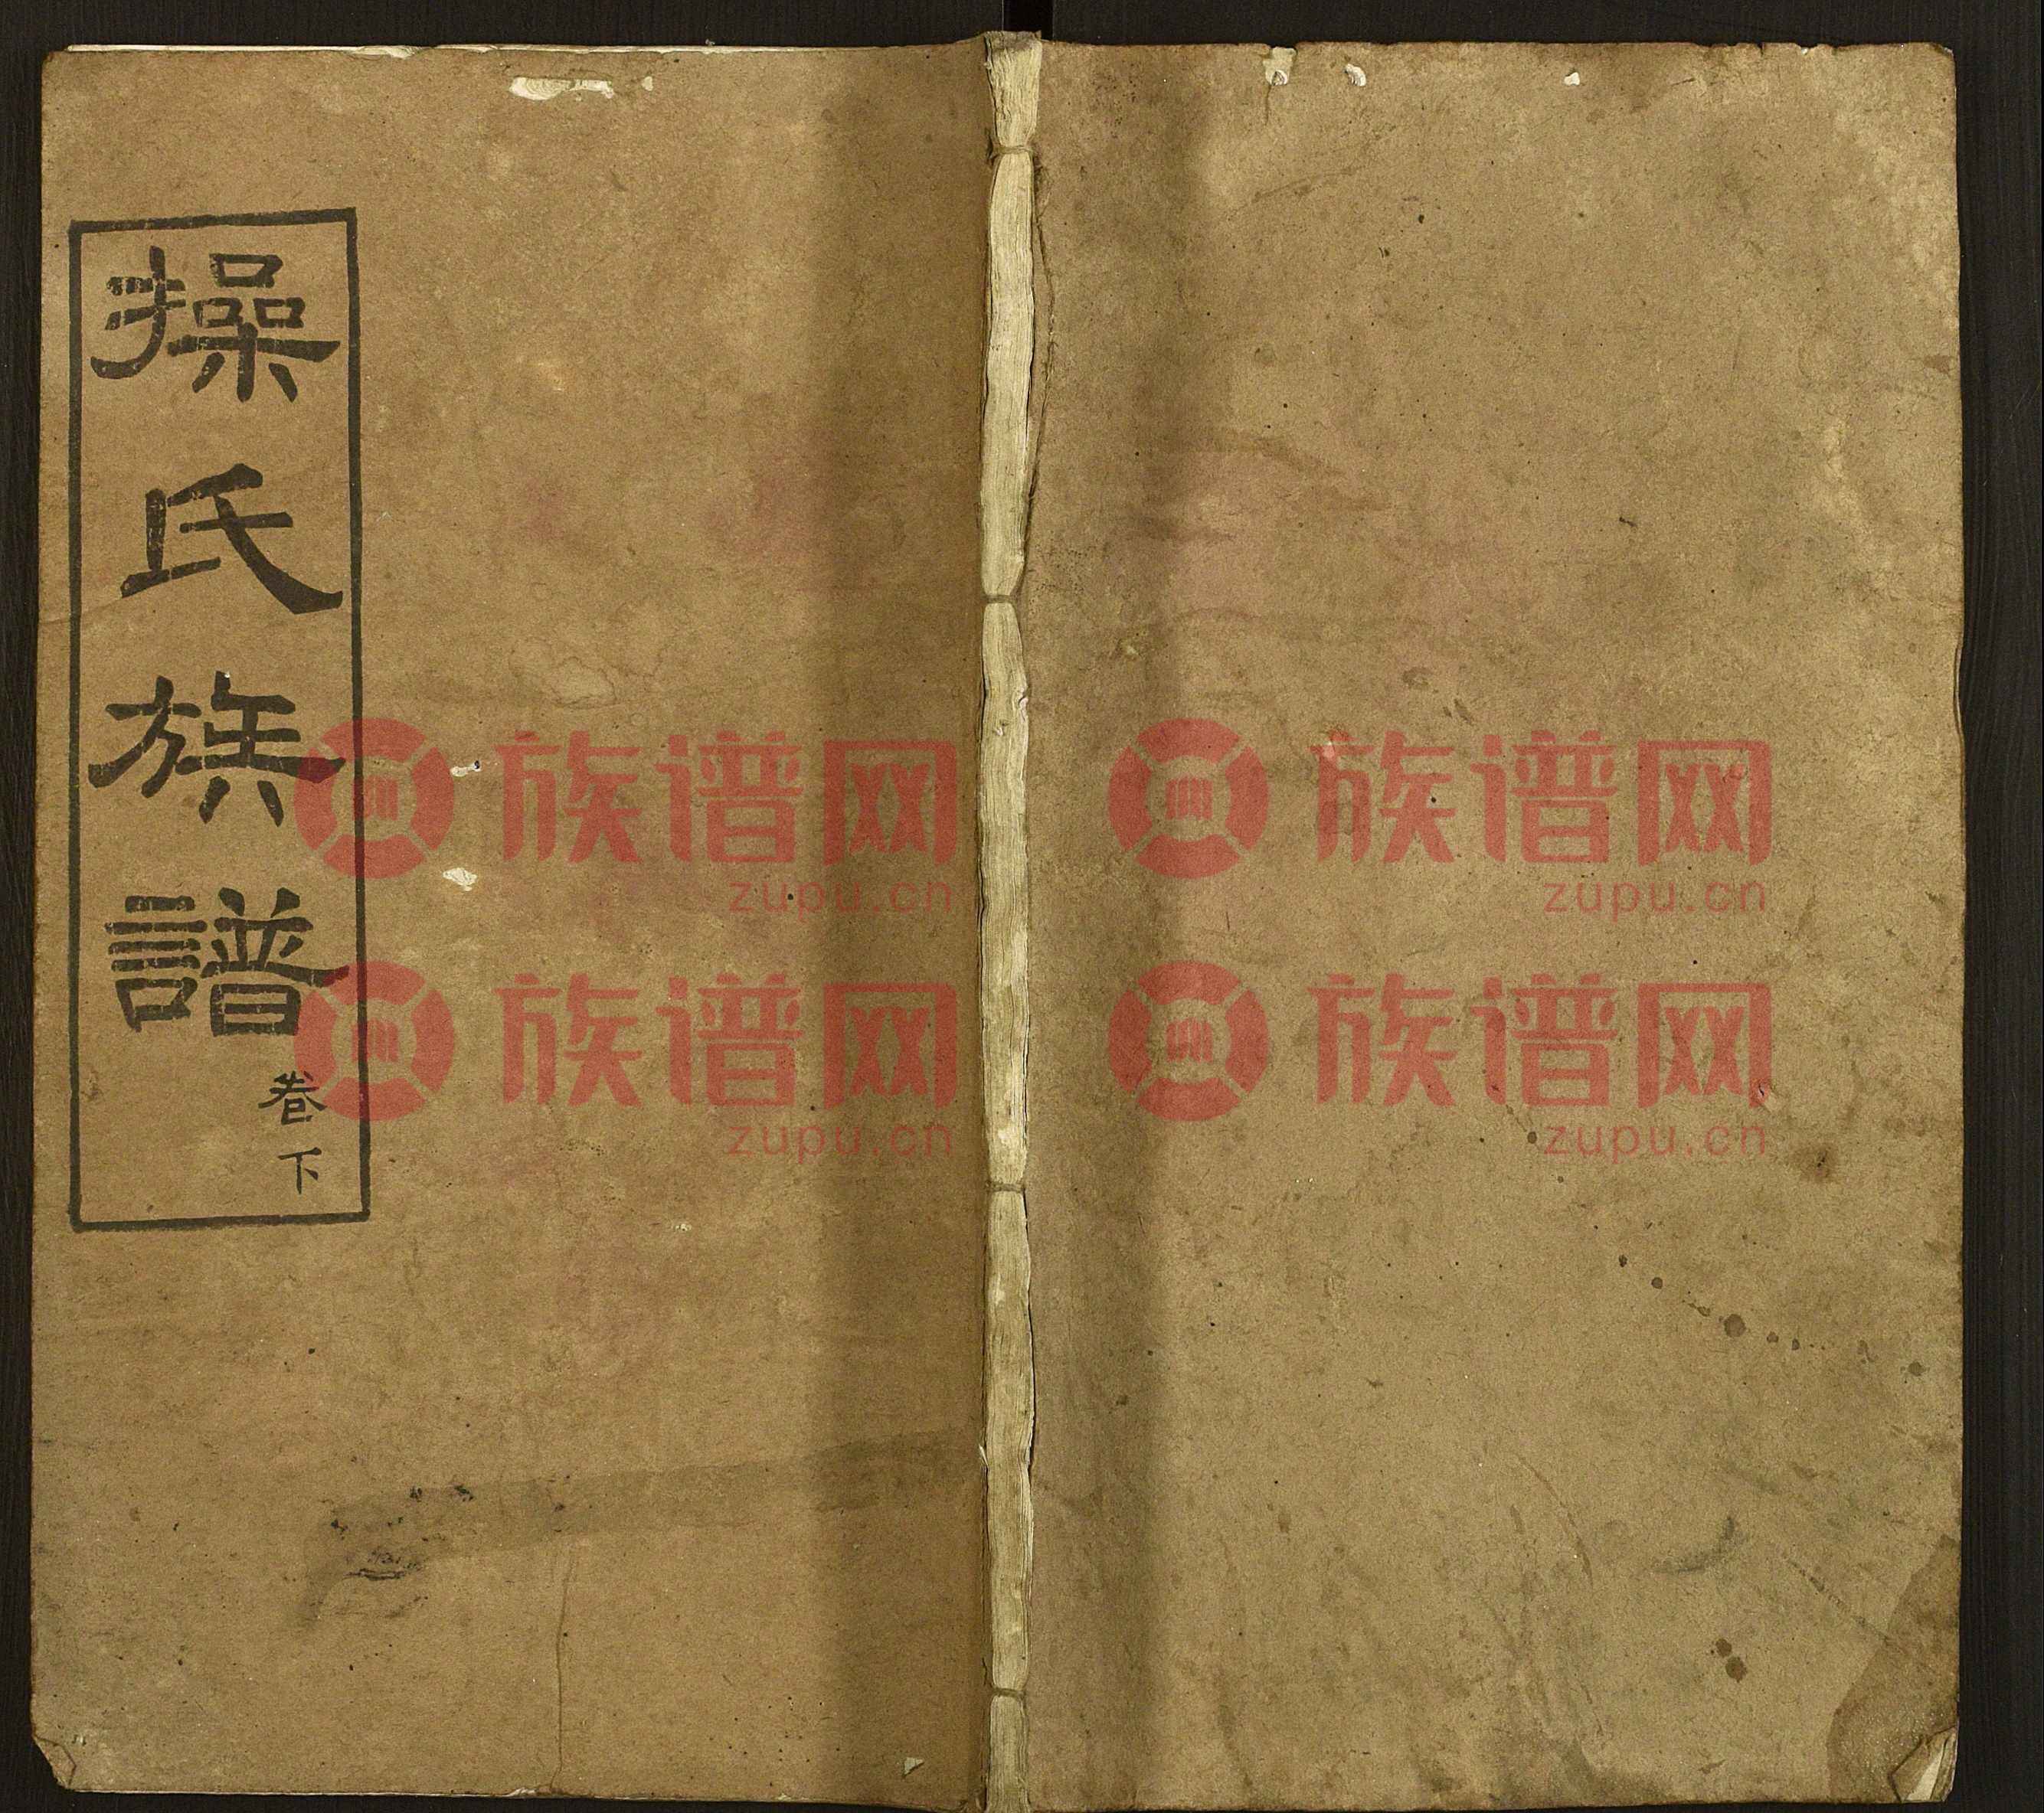 操氏族譜
卷下
族谱网
zupu.cn
族谱网
zupu.cn
族谱网
zupu.cn
族谱网
zupu.cn